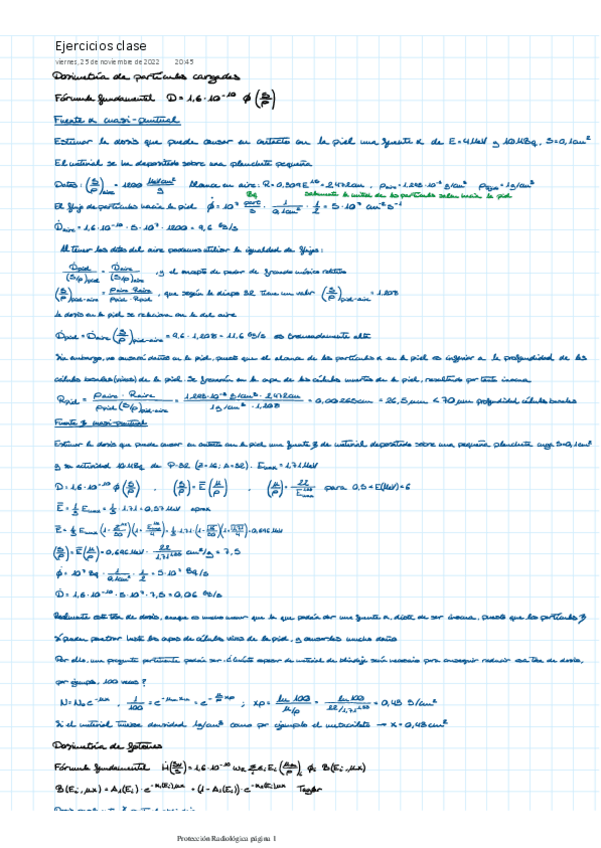 Ejercicios clase
viernes, 25 de noviembre de 2022 20:45
Dosimetría de partículas cargadas
Fórmula fundamental D = 1,6·10⁻¹⁰ ϕ (S/ρ)
Fuente α cuasi-puntual
Estimar la dosis que puede causar en contacto con la piel una fuente α de E=4MeV y 10MBq, S=0,1cm²
El material se ha depositado sobre una plancheta pequeña
Datos: (S/ρ)aire = 1200 MeVcm²/g Alcance en aire: R=0,309E^1,5=2,472cm. ρaire=1,293·10⁻³ g/cm³ ρpiel=1g/cm³
solamente la mitad de las partículas salen hacia la piel
El flujo de partículas hacia la piel ϕ̇ = 10⁷ part/s · 1/0,1cm² · 1/2 = 5·10⁷ cm⁻²s⁻¹
Ḋaire = 1,6·10⁻¹⁰·5·10⁷·1200 = 9,6 Gy/s
Al tener los datos del aire podemos utilizar la igualdad de flujos:
Ḋpiel/(S/ρ)piel = Ḋaire/(S/ρ)aire , y el concepto de poder de frenado másico relativo
(S/ρ)piel-aire = ρaire·Raire/ρpiel·Rpiel , que según la diapo 32 tiene un valor (S/ρ)piel-aire = 1,208
la dosis en la piel se relaciona con la del aire
Ḋpiel = Ḋaire (S/ρ)piel-aire = 9,6·1,208 = 11,6 Gy/s es tremendamente alta
Sin embargo, no causará daños en la piel, puesto que el alcance de las partículas α en la piel es inferior a la profundidad de las
células basales (vivas) de la piel. Se frenarán en la capa de las células muertas de la piel, resultando por tanto inocua
Rpiel = ρaire·Raire/ρpiel(S/ρ)piel-aire = 1,293·10⁻³ g/cm³·2,472cm/1g/cm³·1,208 = 0,00265cm = 26,5μm < 70μm profundidad células basales
Fuente β cuasi-puntual
Estimar la dosis que puede causar en contacto con la piel una fuente β de material depositado sobre una pequeña plancheta S=0,1cm²
y su actividad 10MBq de P-32 (Z=16; A=32). Emax=1,71MeV
D = 1,6·10⁻¹⁰ ϕ(S/ρ) , (S/ρ)=Ē(μ/ρ) , (μ/ρ)=22/Emax^1,33 para 0,5<E(MeV)<6
Ē = 1/3 Emax = 1/3·1,71 = 0,57MeV aprox
(S/ρ)=Ē(μ/ρ)=0,696MeV·22/1,71^1,33 cm²/g = 7,5
ϕ̇ = 10⁷ Bq·1/0,1cm²·1/2 = 5·10⁷ Bq/s
Ḋ = 1,6·10⁻¹⁰·5·10⁷·7,5 = 0,06 Gy/s
Realmente esta tasa de dosis, aunque es mucho menor que la que podría dar una fuente α, dista de ser inocua, puesto que las partículas β
sí pueden penetrar hasta las capas de células vivas de la piel, y causarles mucho daño
Por ello, una pregunta pertinente podría ser: ¿Cuánto espesor de material de blindaje sería necesario para conseguir reducir esa tasa de dosis,
por ejemplo, 100 veces?
N=N₀e^-μx , 1/100 = e^-μx = e^-μ/ρ xρ ; xρ = ln100/μ/ρ = ln100/22/1,71^1,33 = 0,43 g/cm²
Si el material tuviese densidad 1g/cm³ como por ejemplo el metacrilato → x=0,43cm
Dosimetría de fotones
Protección Radiológica página 1